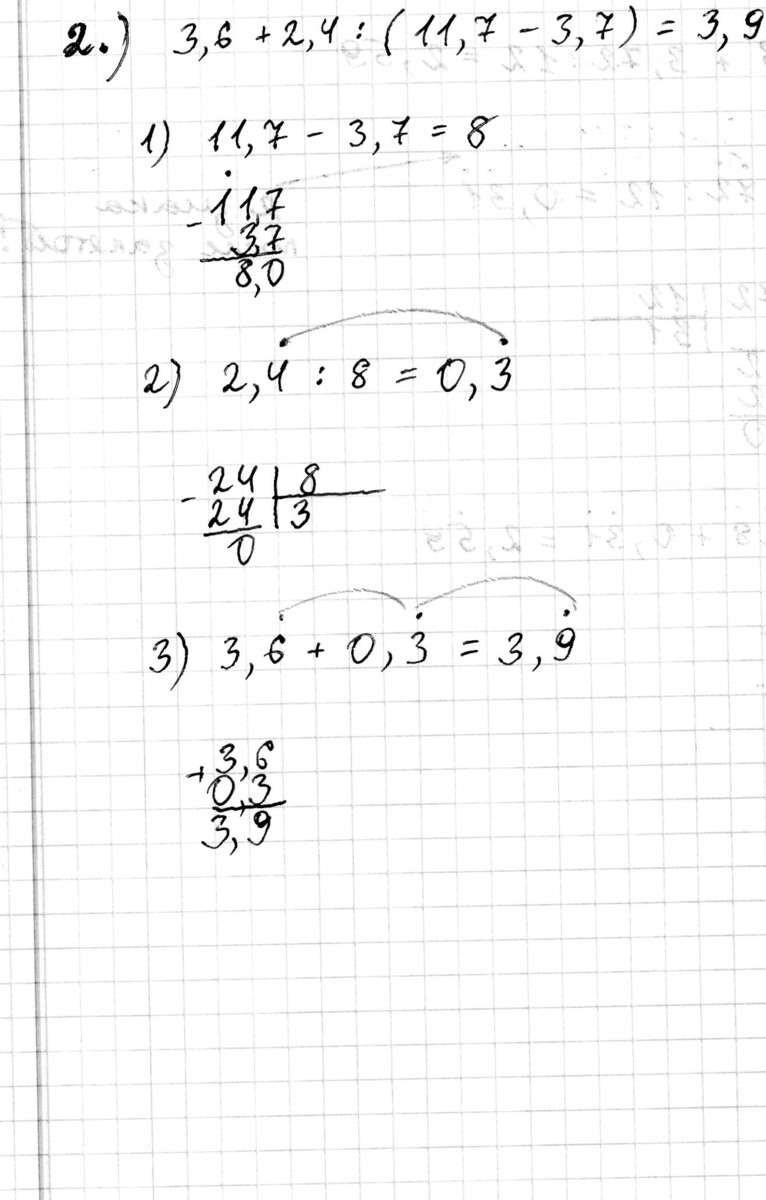 2.) 3,6 + 2,4 : (11,7 - 3,7) = 3,9
1) 11,7 - 3,7 = 8
- 11,7
3,7
8,0
2) 2,4 : 8 = 0,3
- 24 | 8
24 | 3
0
3) 3,6 + 0,3 = 3,9
+ 3,6
0,3
3,9